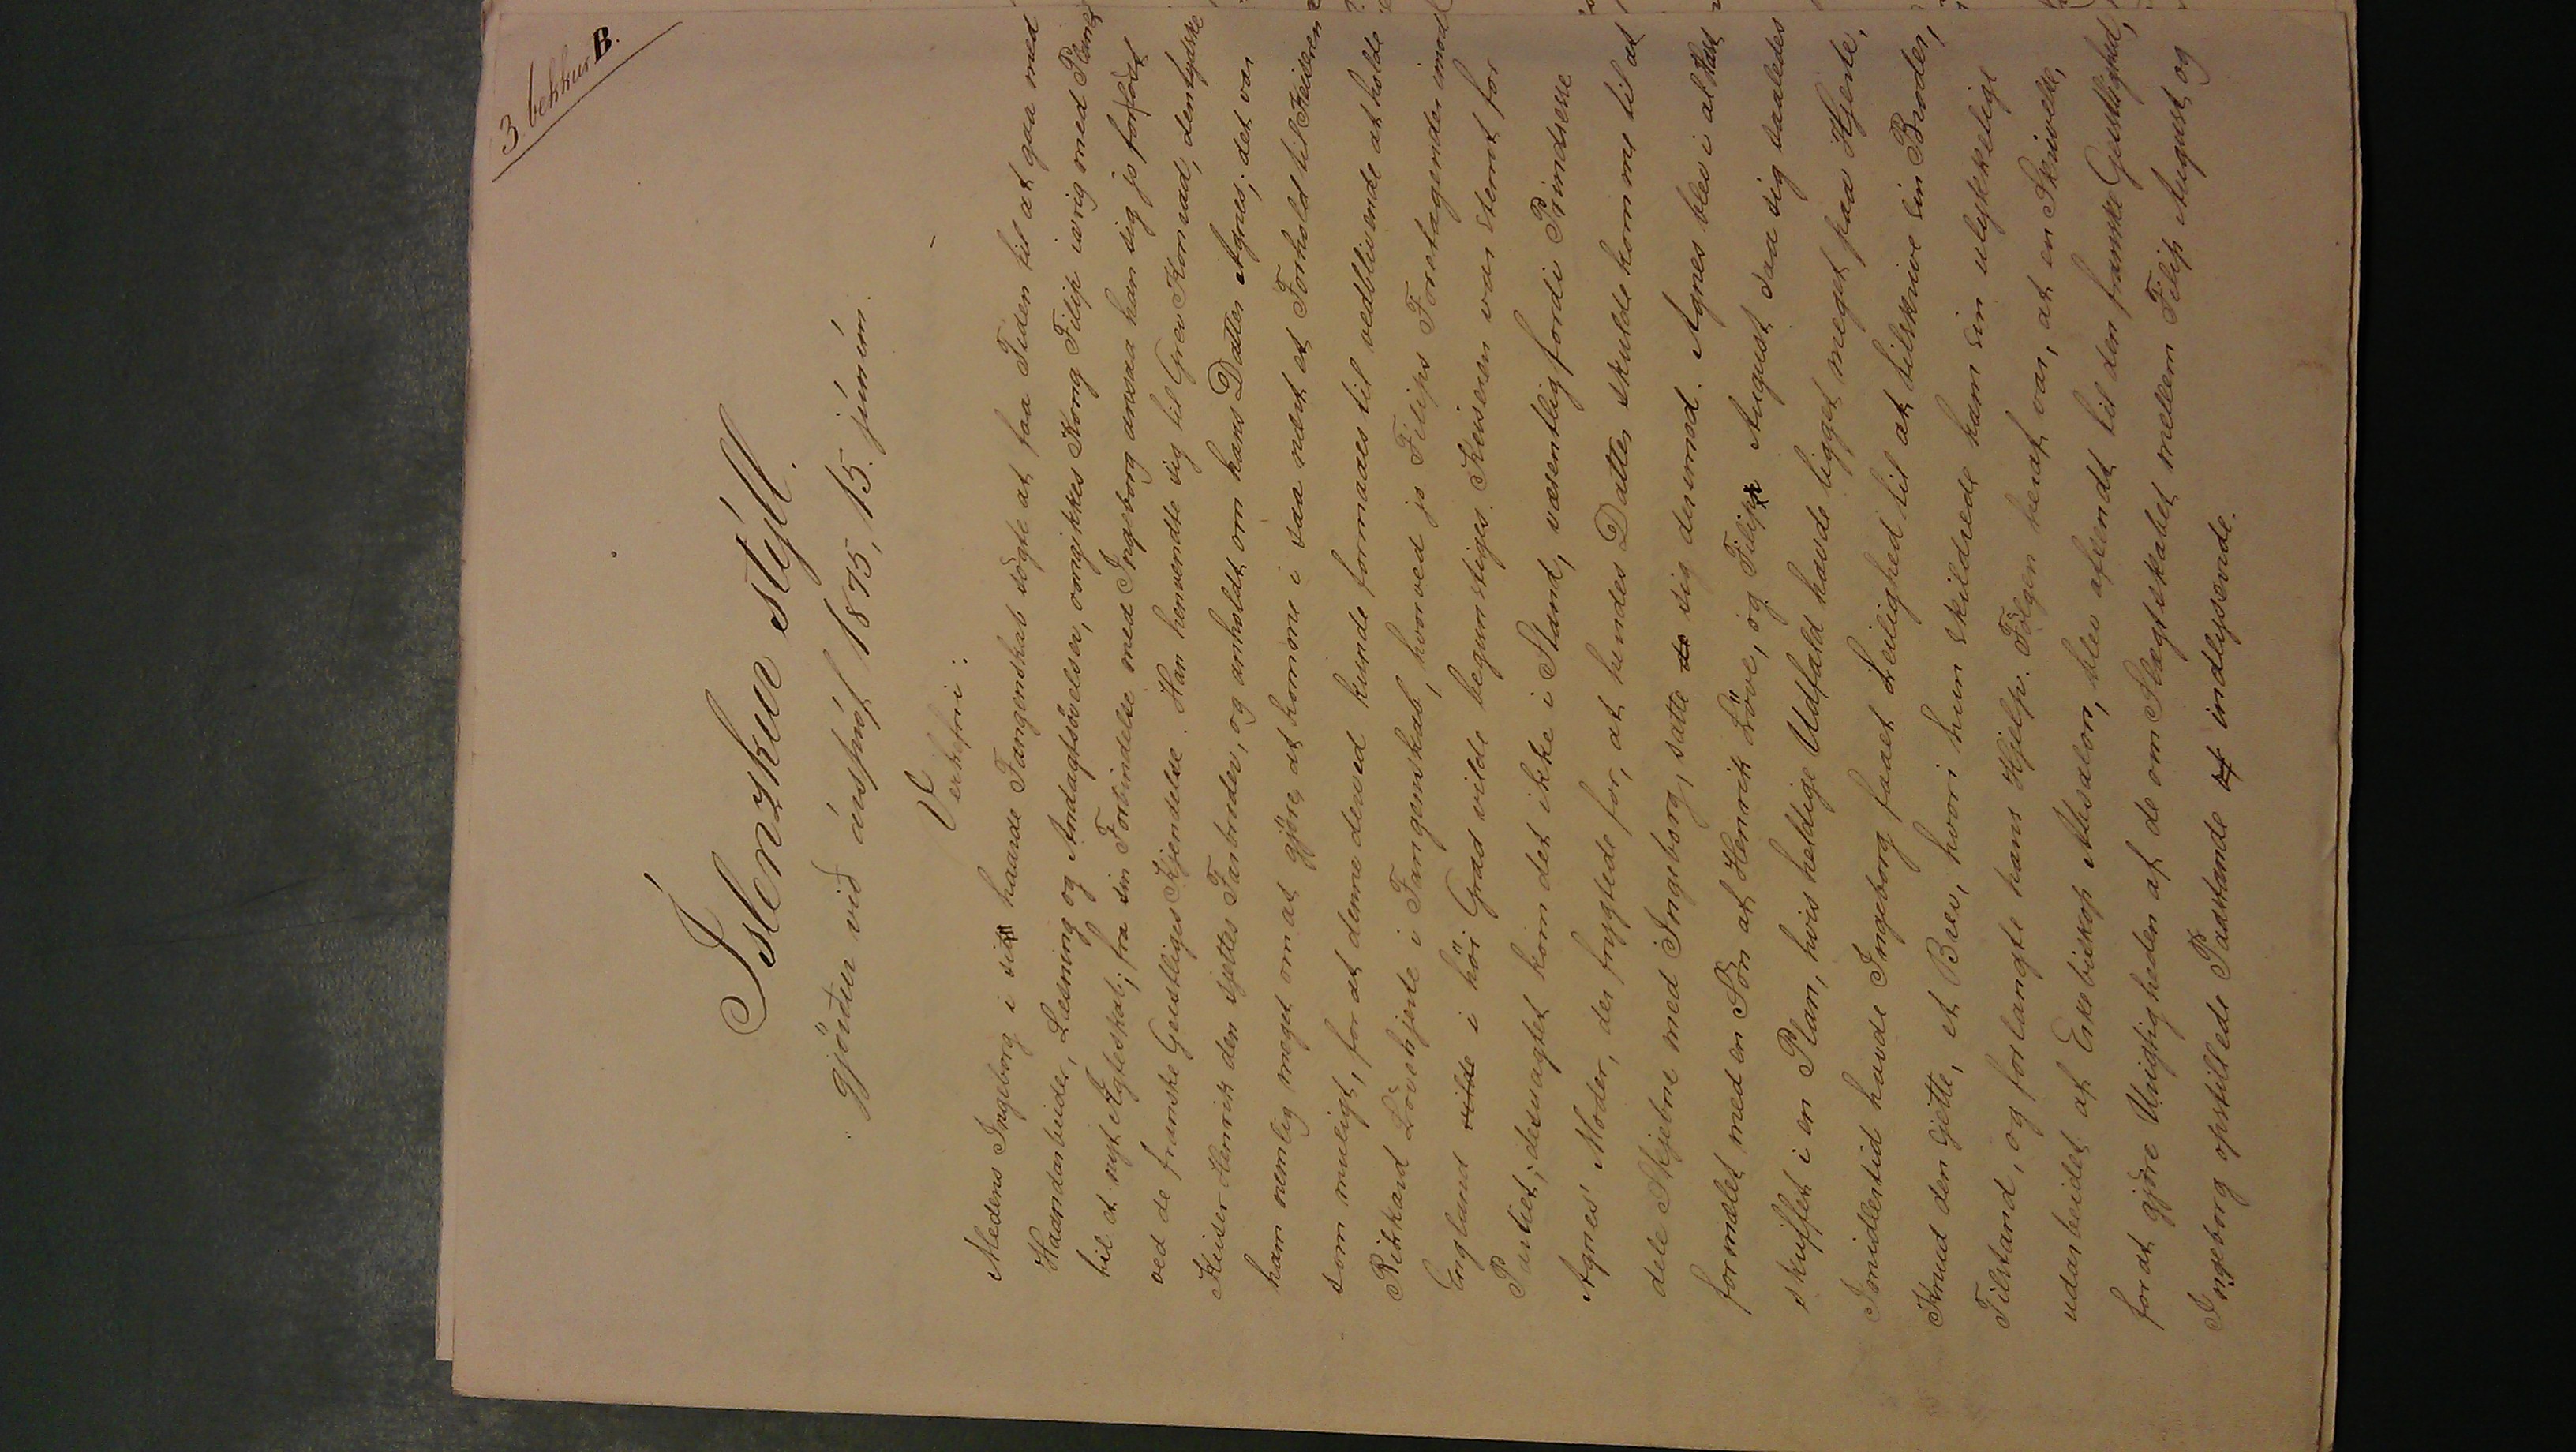 3 bekkur B.
Íslenzkur stýll.
gjörður við árspróf 1875, 15. júním.
Verkefni:
Medens Ingeborg i sit haarde Fangenskab sögte at faa Tiden til at gaa med
Haandarbeider, Læsning og Andagtsövelser, omgikkes Kong Filip ivrig med Planer
til et nyt Ægteskab; fra sin Forbindelse med Ingeborg ansaa han sig jo for löst
ved de franske Geistliges Kjendelse. Han henvendte sig til Grev Konrad, den tydske
Keiser Henrik den sjettes Farbroder, og anholdt om hans Datter Agnes; det var
ham nemlig meget om at gjöre, at komme i saa nært et Forhold til Keiseren
som muligt, for at denne derved kunde formaaes til vedblivende at holde
Rikkard Lövehjerte i Fangenskab, hvorved jo Filips Foretagender imod
England vilde i höi Grad vilde begunstiges. Keiseren var stemt for
Partiet; desuagtet kom det ikke i Stand, væsentlig fordi Prindsesse
Agnes' Moder, der frygtede for, at hendes Datter skulde komme til at
dele Skjebne med Ingeborg, satte sig derimod. Agnes blev i al Hast
formælet med en Sön at Henrik Löve, og Filip August saa sig saaledes
skuffet i en Plan, hvis heldige Udfald havde ligget meget paa Hjerte.
Imidlertid havde Ingeborg faaet Leilighed til at tilskrive sin Broder,
Knud den sjette, et Brev, hvori hun skildrede ham sin ulykkelige
Tilstand, og forlangte hans Hjelp. Fölgen heraf var, at en Skrivelse,
udarbeidet af Erkebiskop Absalon, blev afsendt til den franske Geistlighed,
for at gjöre Urigtigheden af de om Slægtskabet mellem Filip August og
Ingeborg opstillede Paastande indlysende.